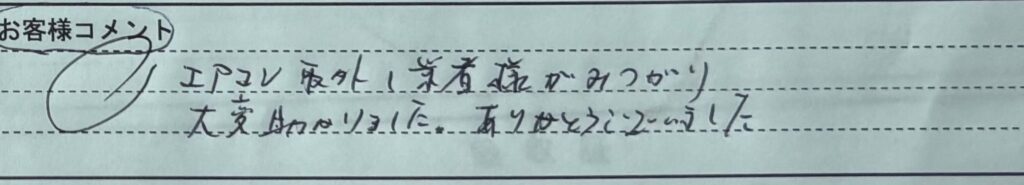 お客様コメント
エアコン取外し業者様がみつかり
大変助かりました。ありがとうございました